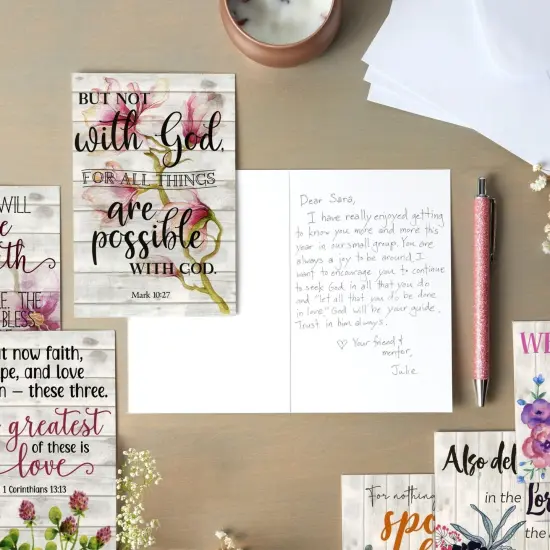 BUT NOT
with God,
FOR ALL THINGS
are
possible
WITH GOD.
Mark 10:27
Dear Sara,
I have really enjoyed getting
to know you more and more this
year in our small group. You are
always a joy to be around. I
want to encourage you to continue
to seek God in all that you do
and "let all that you do be done
in love." God will be your guide.
Trust in him always.
♡ Your friend &
mentor,
Julie
WILL
THE
BLESS
now faith,
and love
— these three.
greatest
of these is
love
1 Corinthians 13:13
For nothing
Also del
in the Lor
the